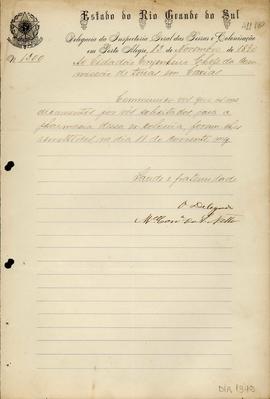 Estado do Rio Grande do Sul
Delegacia da Inspectoria Geral das Terras e Colonisação
em Porto Alegre, 12 de Novembro de 1890
Nº 1300
Ao Cidadão Engenheiro Chefe da Com-
missão de Terras em Caxias
Communico vos que os me-
dicamentos por vós solicitados para a
pharmacia dessa ex colonia, foram
remettidos no dia 11 do corrente mez
Saude e fraternidade
O Delegado